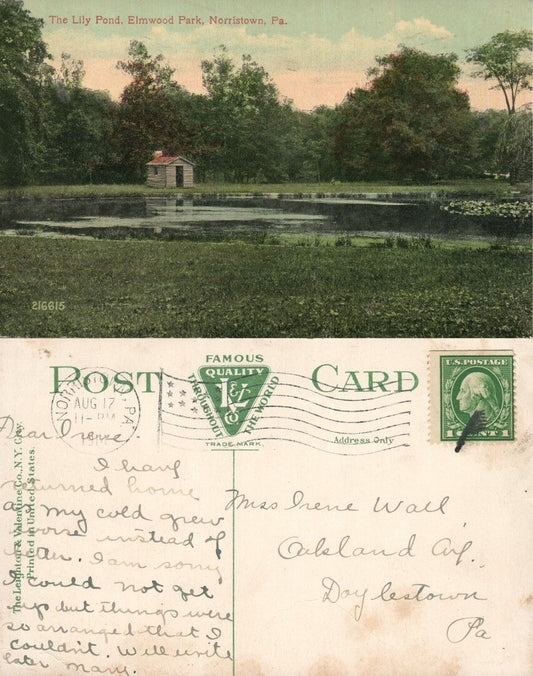 The Lily Pond, Elmwood Park, Norristown, Pa.
216615
POST CARD
FAMOUS
QUALITY
THROUGHOUT THE WORLD
TRADE MARK.
Address Only
U.S. POSTAGE
1 CENT 1
NORRISTOWN, PA.
AUG 17
11-PM
The Leighton & Valentine Co., N.Y. City.
Printed in United States.
Dear Irene
I have
returned home
as my cold grew
worse instead of
better. I am sorry
I could not get
up but things were
so arranged that I
couldn't. Will write
later Mary.
Miss Irene Wall
Oakland Av.
Doylestown
Pa